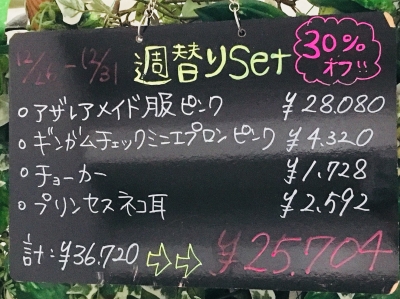 12/26 - 12/31
週替りSet
30%
オフ!!
○アザレアメイド服ピンク ¥28.080
○ギンガムチェックミニエプロンピンク ¥4.320
○チョーカー ¥1.728
○プリンセスネコ耳 ¥2.592
計:¥36.720 ⇨⇨ ¥25.704